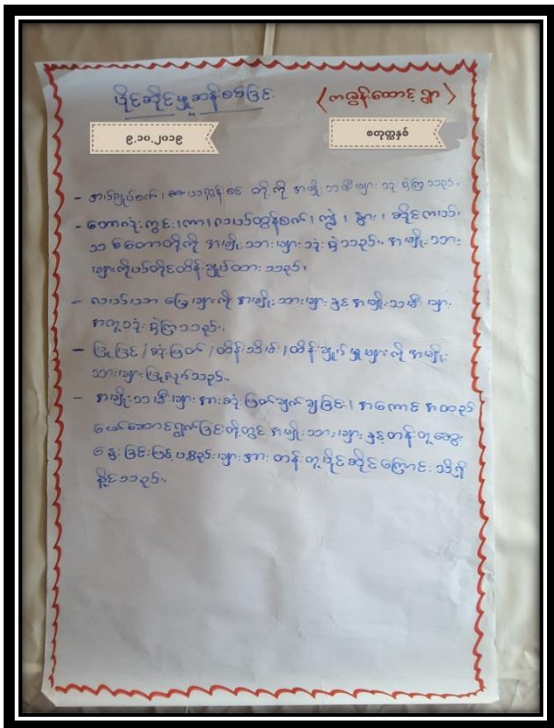 ပိုင်ဆိုင်မှုဆန်းစစ်ခြင်း
(ကဇွန်းထောင့်ရွာ)
၉.၁၀.၂၀၁၉
စတုတ္ထနှစ်
- အပ်ချုပ်စက်၊ တို့ကို အမျိုးသမီးများ သုံးစွဲကြသည်။
- ဘောလုံးကွင်း၊ ကား၊ လယ်ထွန်စက်၊ ကျွဲ၊ နွား၊ ဆိုင်ကယ်၊
သစ်တောတို့ကို အမျိုးသားများ သုံးစွဲသည်။ အမျိုးသား
များကိုယ်တိုင်ထိန်းချုပ်ထားသည်။
- လယ်ယာမြေများကို အမျိုးသားများ နှင့် အမျိုးသမီးများ
အတူသုံးစွဲကြသည်။
- ပြုပြင်/ဆုံးဖြတ်/ထိန်းသိမ်း/ထိန်းချုပ်မှုများကို အမျိုး
သားများပြုလုပ်သည်။
- အမျိုးသမီးများအားဆုံးဖြတ်ချက်ချခြင်း၊ အကောင်အထည်
ဖော်ဆောင်ရွက်ခြင်းတို့တွင် အမျိုးသားများ နှင့်တန်းတူဆွေး
နွေးခြင်းဖြင့်ပစ္စည်းများအား တန်းတူပိုင်ဆိုင်ကြောင်းသိရှိ
နိုင်သည်။